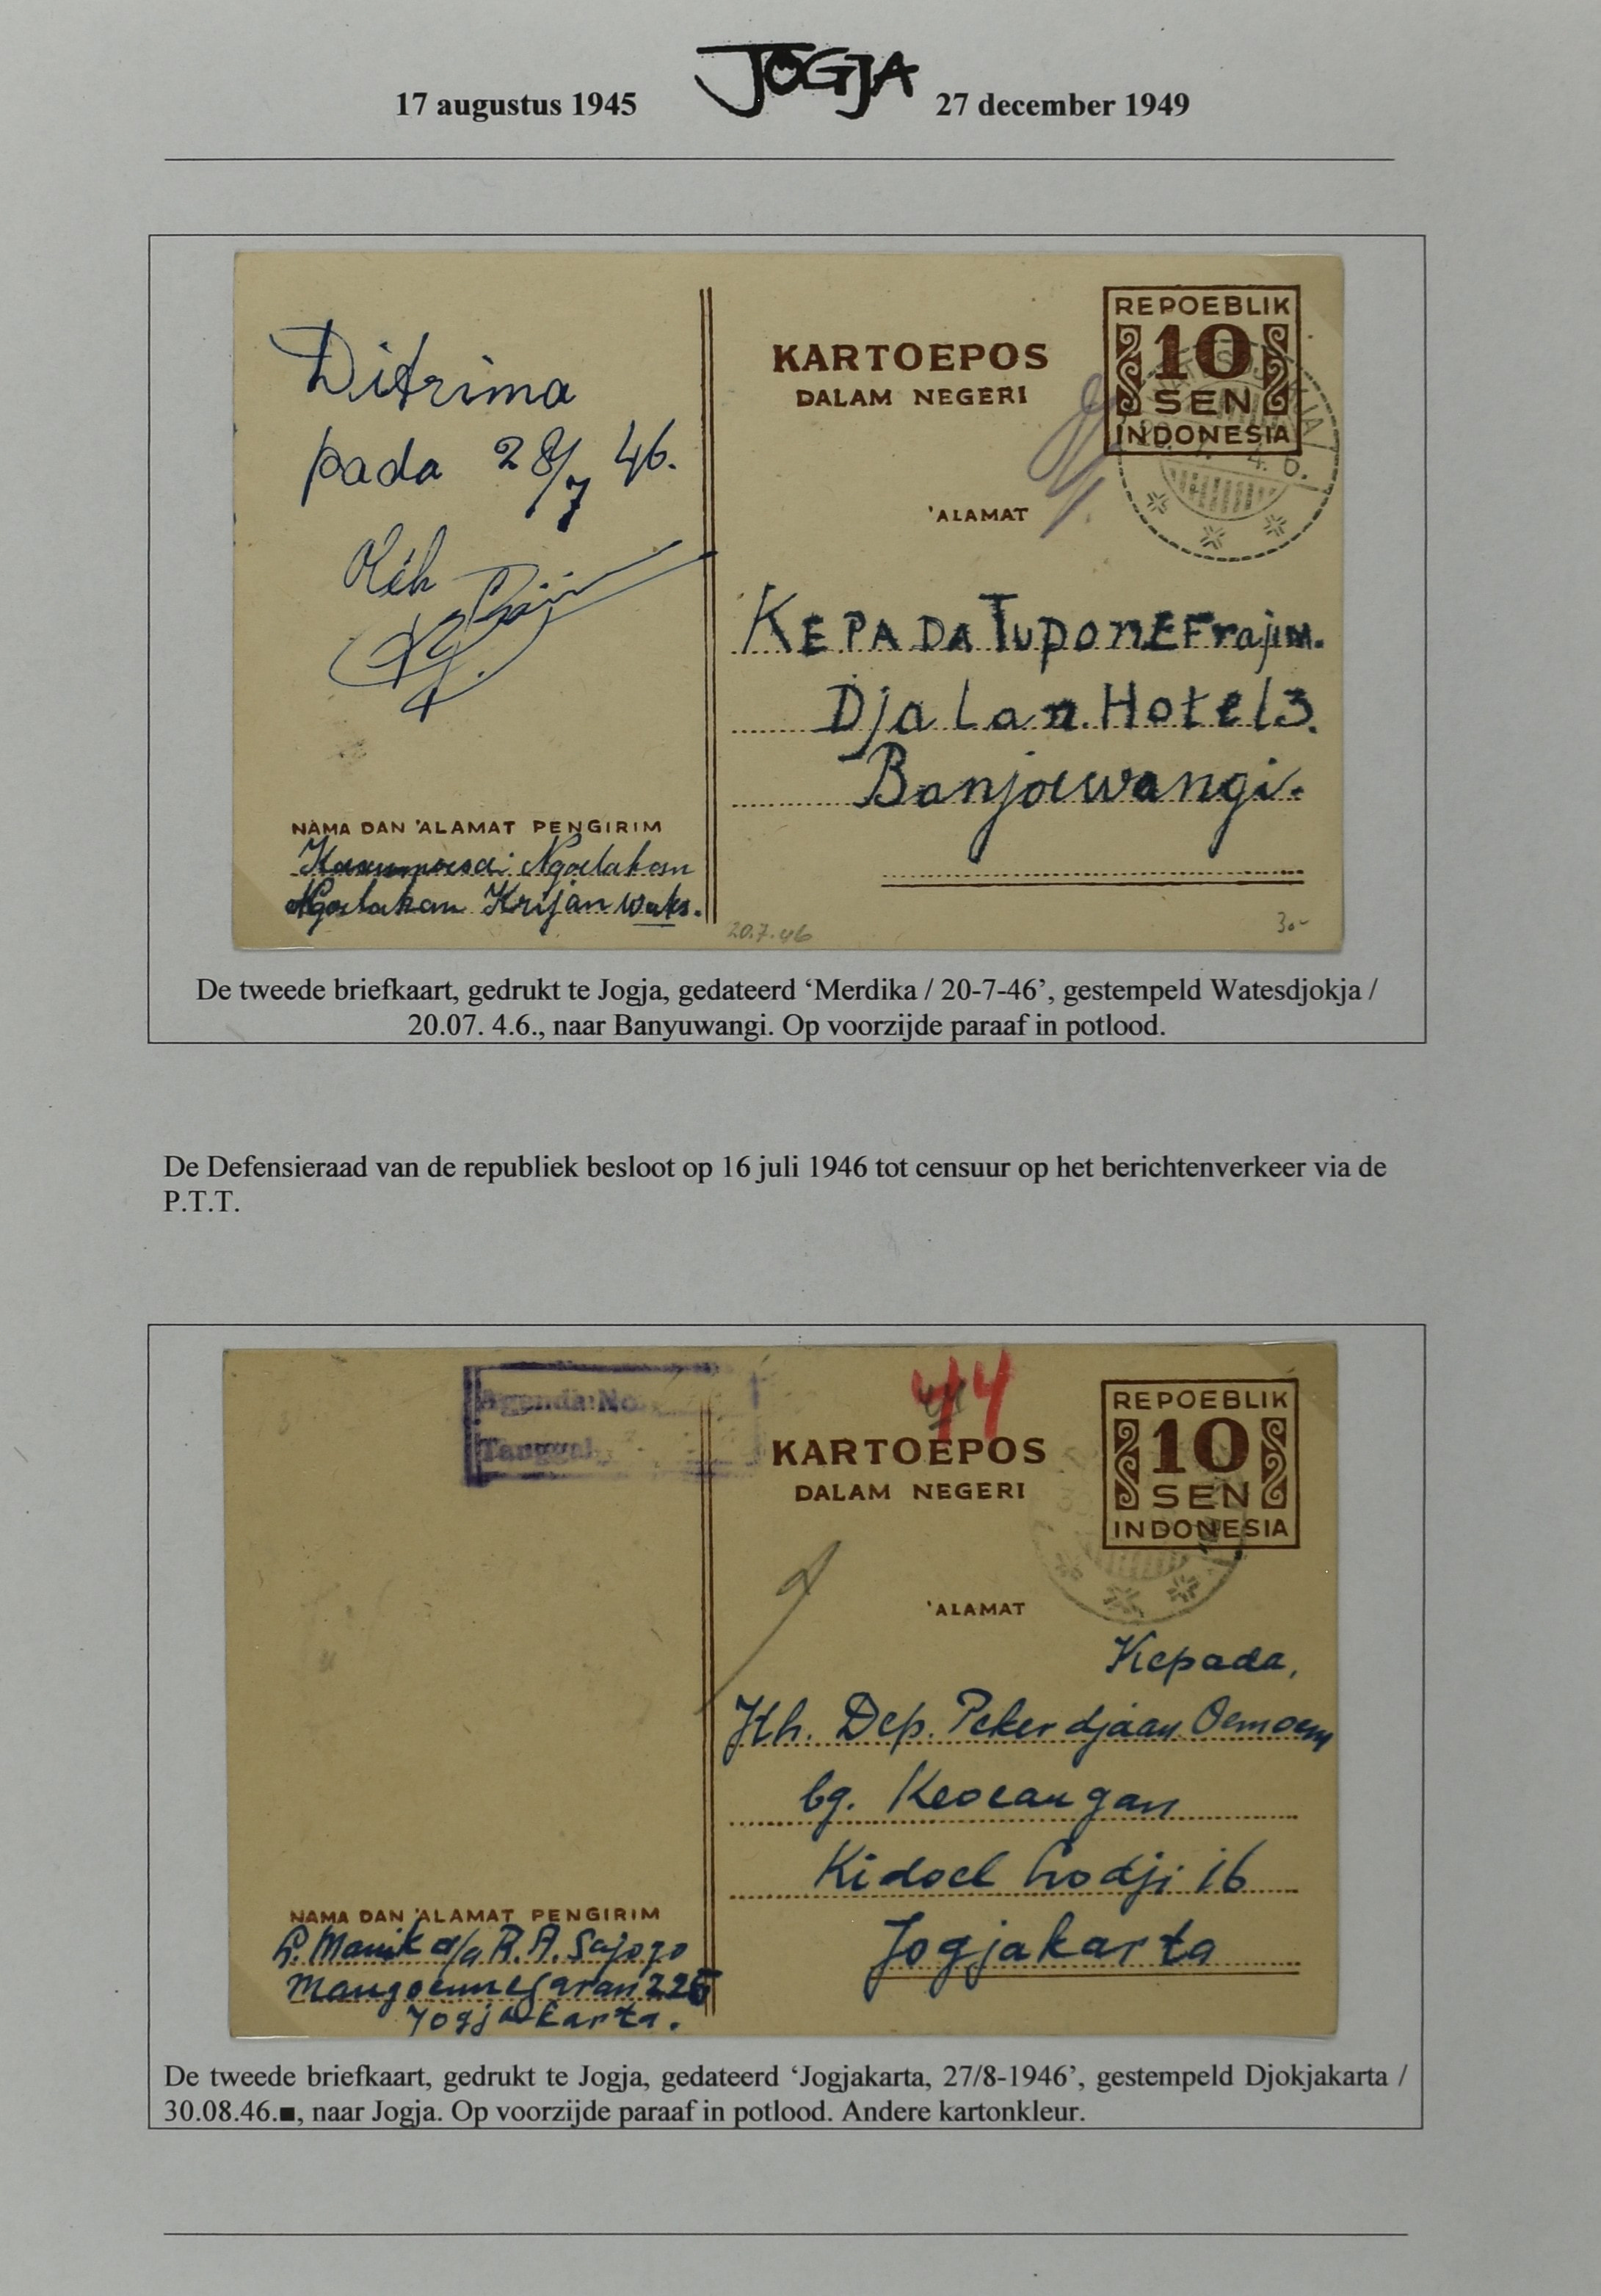 17 augustus 1945 JOGJA 27 december 1949
Ditrima
pada 28/7 46.
Oléh
KARTOEPOS
DALAM NEGERI
REPOEBLIK
10
SEN
INDONESIA
'ALAMAT
KEPADA TuponEFrajim.
Djalan Hotel 3.
Banjoewangi.
NAMA DAN 'ALAMAT PENGIRIM
Ngoelakan
Ngoelakan Krijan Wates.
20.7.46
30-
De tweede briefkaart, gedrukt te Jogja, gedateerd ‘Merdika / 20-7-46’, gestempeld Watesdjokja /
20.07. 4.6., naar Banyuwangi. Op voorzijde paraaf in potlood.
De Defensieraad van de republiek besloot op 16 juli 1946 tot censuur op het berichtenverkeer via de
P.T.T.
Agenda No.
Tanggal
44
KARTOEPOS
DALAM NEGERI
REPOEBLIK
10
SEN
INDONESIA
'ALAMAT
Kepada,
Kh. Dep. Pekerdjaan Oemoem
bg. Keoeangan
Kidoel Lodji 16
Jogjakarta
NAMA DAN 'ALAMAT PENGIRIM
L. Manik a/a R.A. Sajogo
Mangoennegaran 226
Jogjakarta.
De tweede briefkaart, gedrukt te Jogja, gedateerd ‘Jogjakarta, 27/8-1946’, gestempeld Djokjakarta /
30.08.46.■, naar Jogja. Op voorzijde paraaf in potlood. Andere kartonkleur.